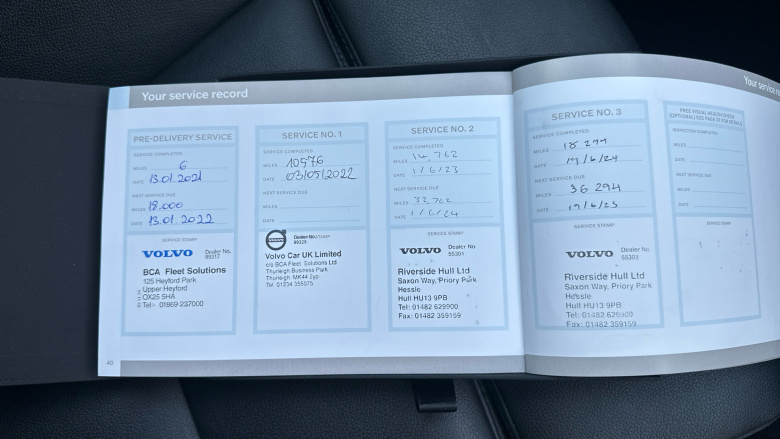 Your service record
Your service re
PRE-DELIVERY SERVICE
SERVICE COMPLETED
MILES 6
DATE 13.01.2021
NEXT SERVICE DUE
MILES 18.000
DATE 13.01.2022
SERVICE STAMP
VOLVO Dealer No.
89317
BCA Fleet Solutions
125 Heyford Park
Upper Heyford
OX25 5HA
Tel:- 01869 237000
SERVICE NO. 1
SERVICE COMPLETED
MILES 10576
DATE 03/05/2022
NEXT SERVICE DUE
MILES
DATE
Dealer No.
89325
Volvo Car UK Limited
c/o BCA Fleet Solutions Ltd
Thurleigh Business Park
Thurleigh MK44 2yp
Tel: 01234 355075
SERVICE NO. 2
SERVICE COMPLETED
MILES 14,762
DATE 1/6/23
NEXT SERVICE DUE
MILES
DATE 1/6/24
SERVICE STAMP
VOLVO Dealer No.
55301
Riverside Hull Ltd
Saxon Way, Priory Park
Hessle
Hull HU13 9PB
Tel: 01482 629900
Fax: 01482 359159
SERVICE NO. 3
SERVICE COMPLETED
MILES 18 294
DATE 19/6/24
NEXT SERVICE DUE
MILES 36 294
DATE 19/6/25
SERVICE STAMP
VOLVO Dealer No
55301
Riverside Hull Ltd
Saxon Way, Priory Park
Hessle
Hull HU13 9PB
Tel: 01482 629900
Fax: 01482 359159
FREE VISUAL HEALTH CHECK
(OPTIONAL) SEE PAGE 37 FOR DETAILS
INSPECTION COMPLETED
MILES
DATE
NEXT SERVICE DUE
MILES
DATE
SERVICE STAMP
40